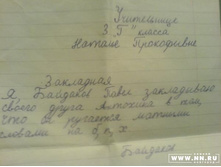 Учительнице
3 "Г" класса
Наталье Прокофьевне
Закладная
Я, Байдаков Павел закладываю
своего друга Антохина в том,
что он ругается матными
словами на б, п, х
Байдаков
WWW.NN.RU